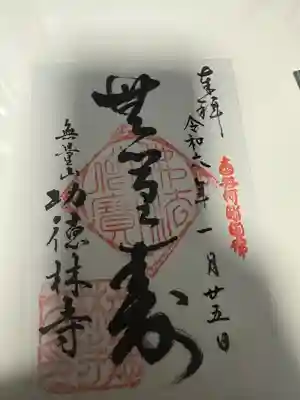 奉拝
令和六年一月廿五日
無量壽
無量山
功徳林寺